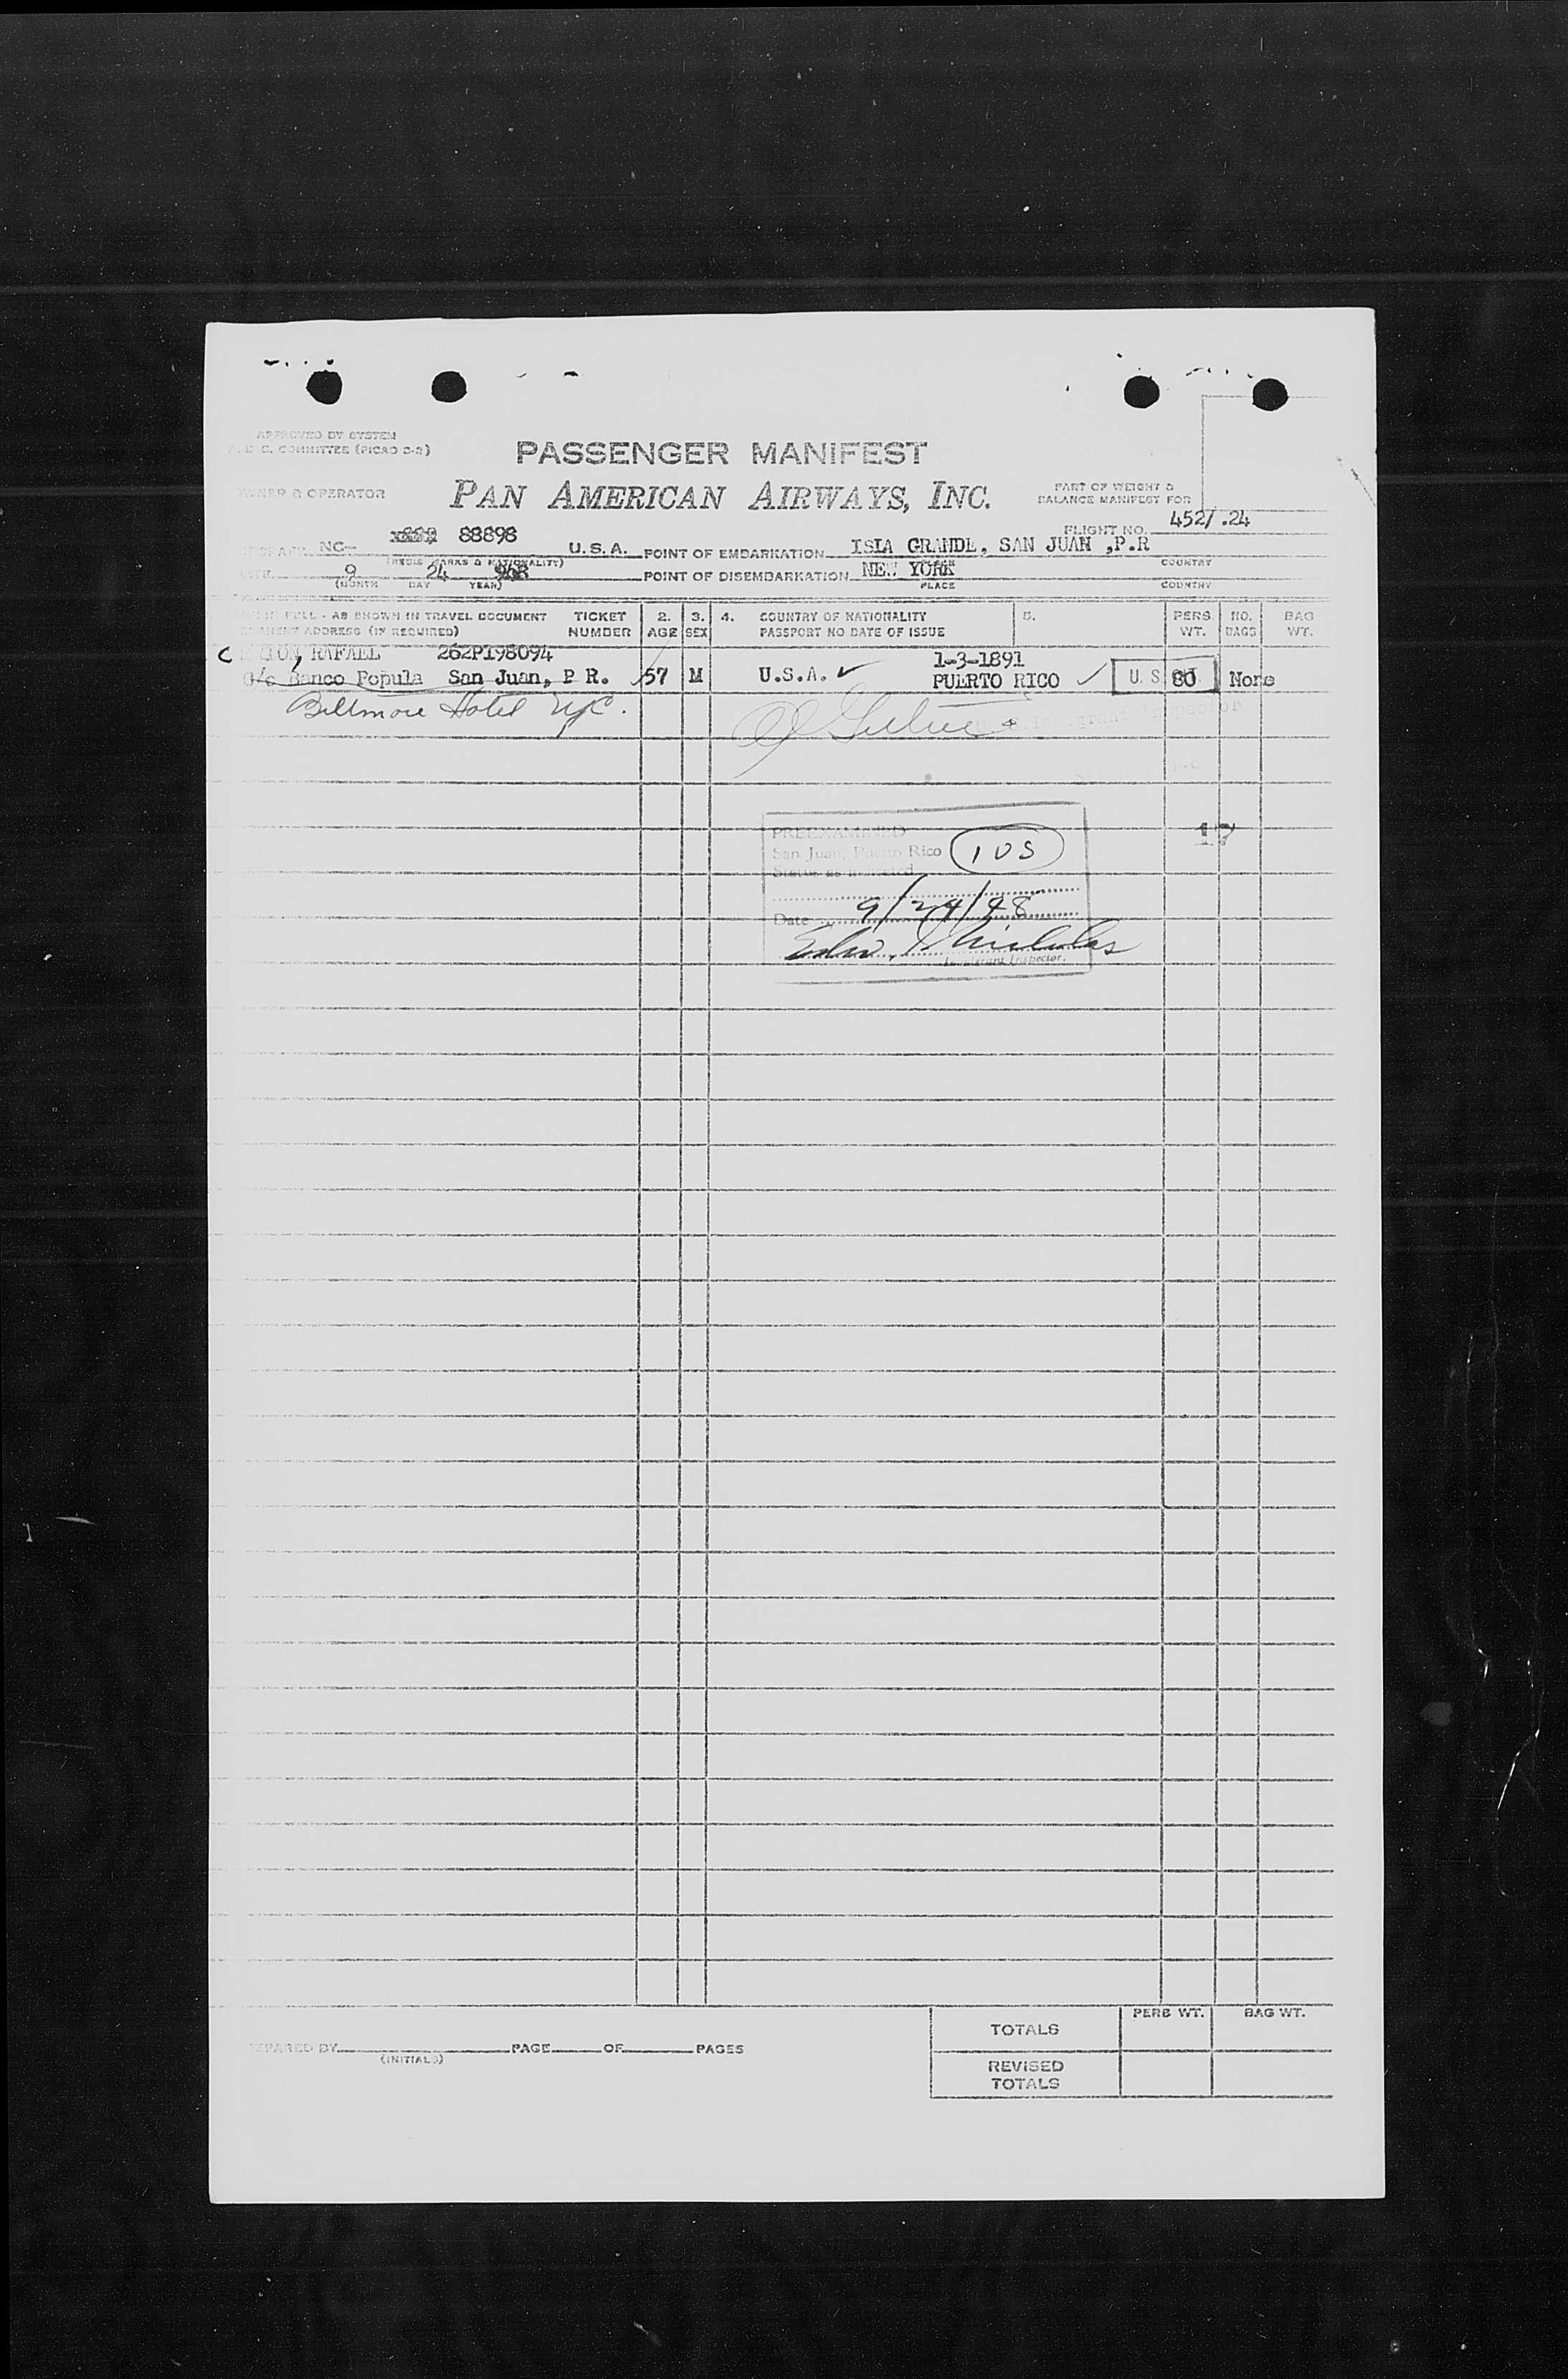 APPROVED BY SYSTEM
C. COMMITTEE (PICAO 2-2)
PASSENGER MANIFEST
OWNER & OPERATOR
PAN AMERICAN AIRWAYS, INC.
PART OF WEIGHT &
BALANCE MANIFEST FOR
FLIGHT NO. 452/.24
NC- 88898 U.S.A. POINT OF EMBARKATION ISLA GRANDE, SAN JUAN ,P.R
(REGIS. MARKS & NATIONALITY) PLACE COUNTRY
9 24 POINT OF DISEMBARKATION NEW YORK
(MONTH DAY YEAR) PLACE COUNTRY
IN FULL - AS SHOWN IN TRAVEL DOCUMENT TICKET 2. 3. 4. COUNTRY OF NATIONALITY 5. PERS NO. BAG
ADDRESS (IF REQUIRED) NUMBER AGE SEX PASSPORT NO DATE OF ISSUE WT. BAGS WT.
RAFAEL 262P198094 1-3-1891
C/o Banco Popula San Juan, P R. 57 M U.S.A. PUERTO RICO U.S. None
Biltmore Hotel NYC.
Immigrant Inspector
PREEXAMINED
San Juan, Puerto Rico 1 US
Status as indicated
Date 9/24/48
Immigrant Inspector.
17
TOTALS PERS WT. BAG WT.
PREPARED BY PAGE OF PAGES
(INITIALS)
REVISED
TOTALS